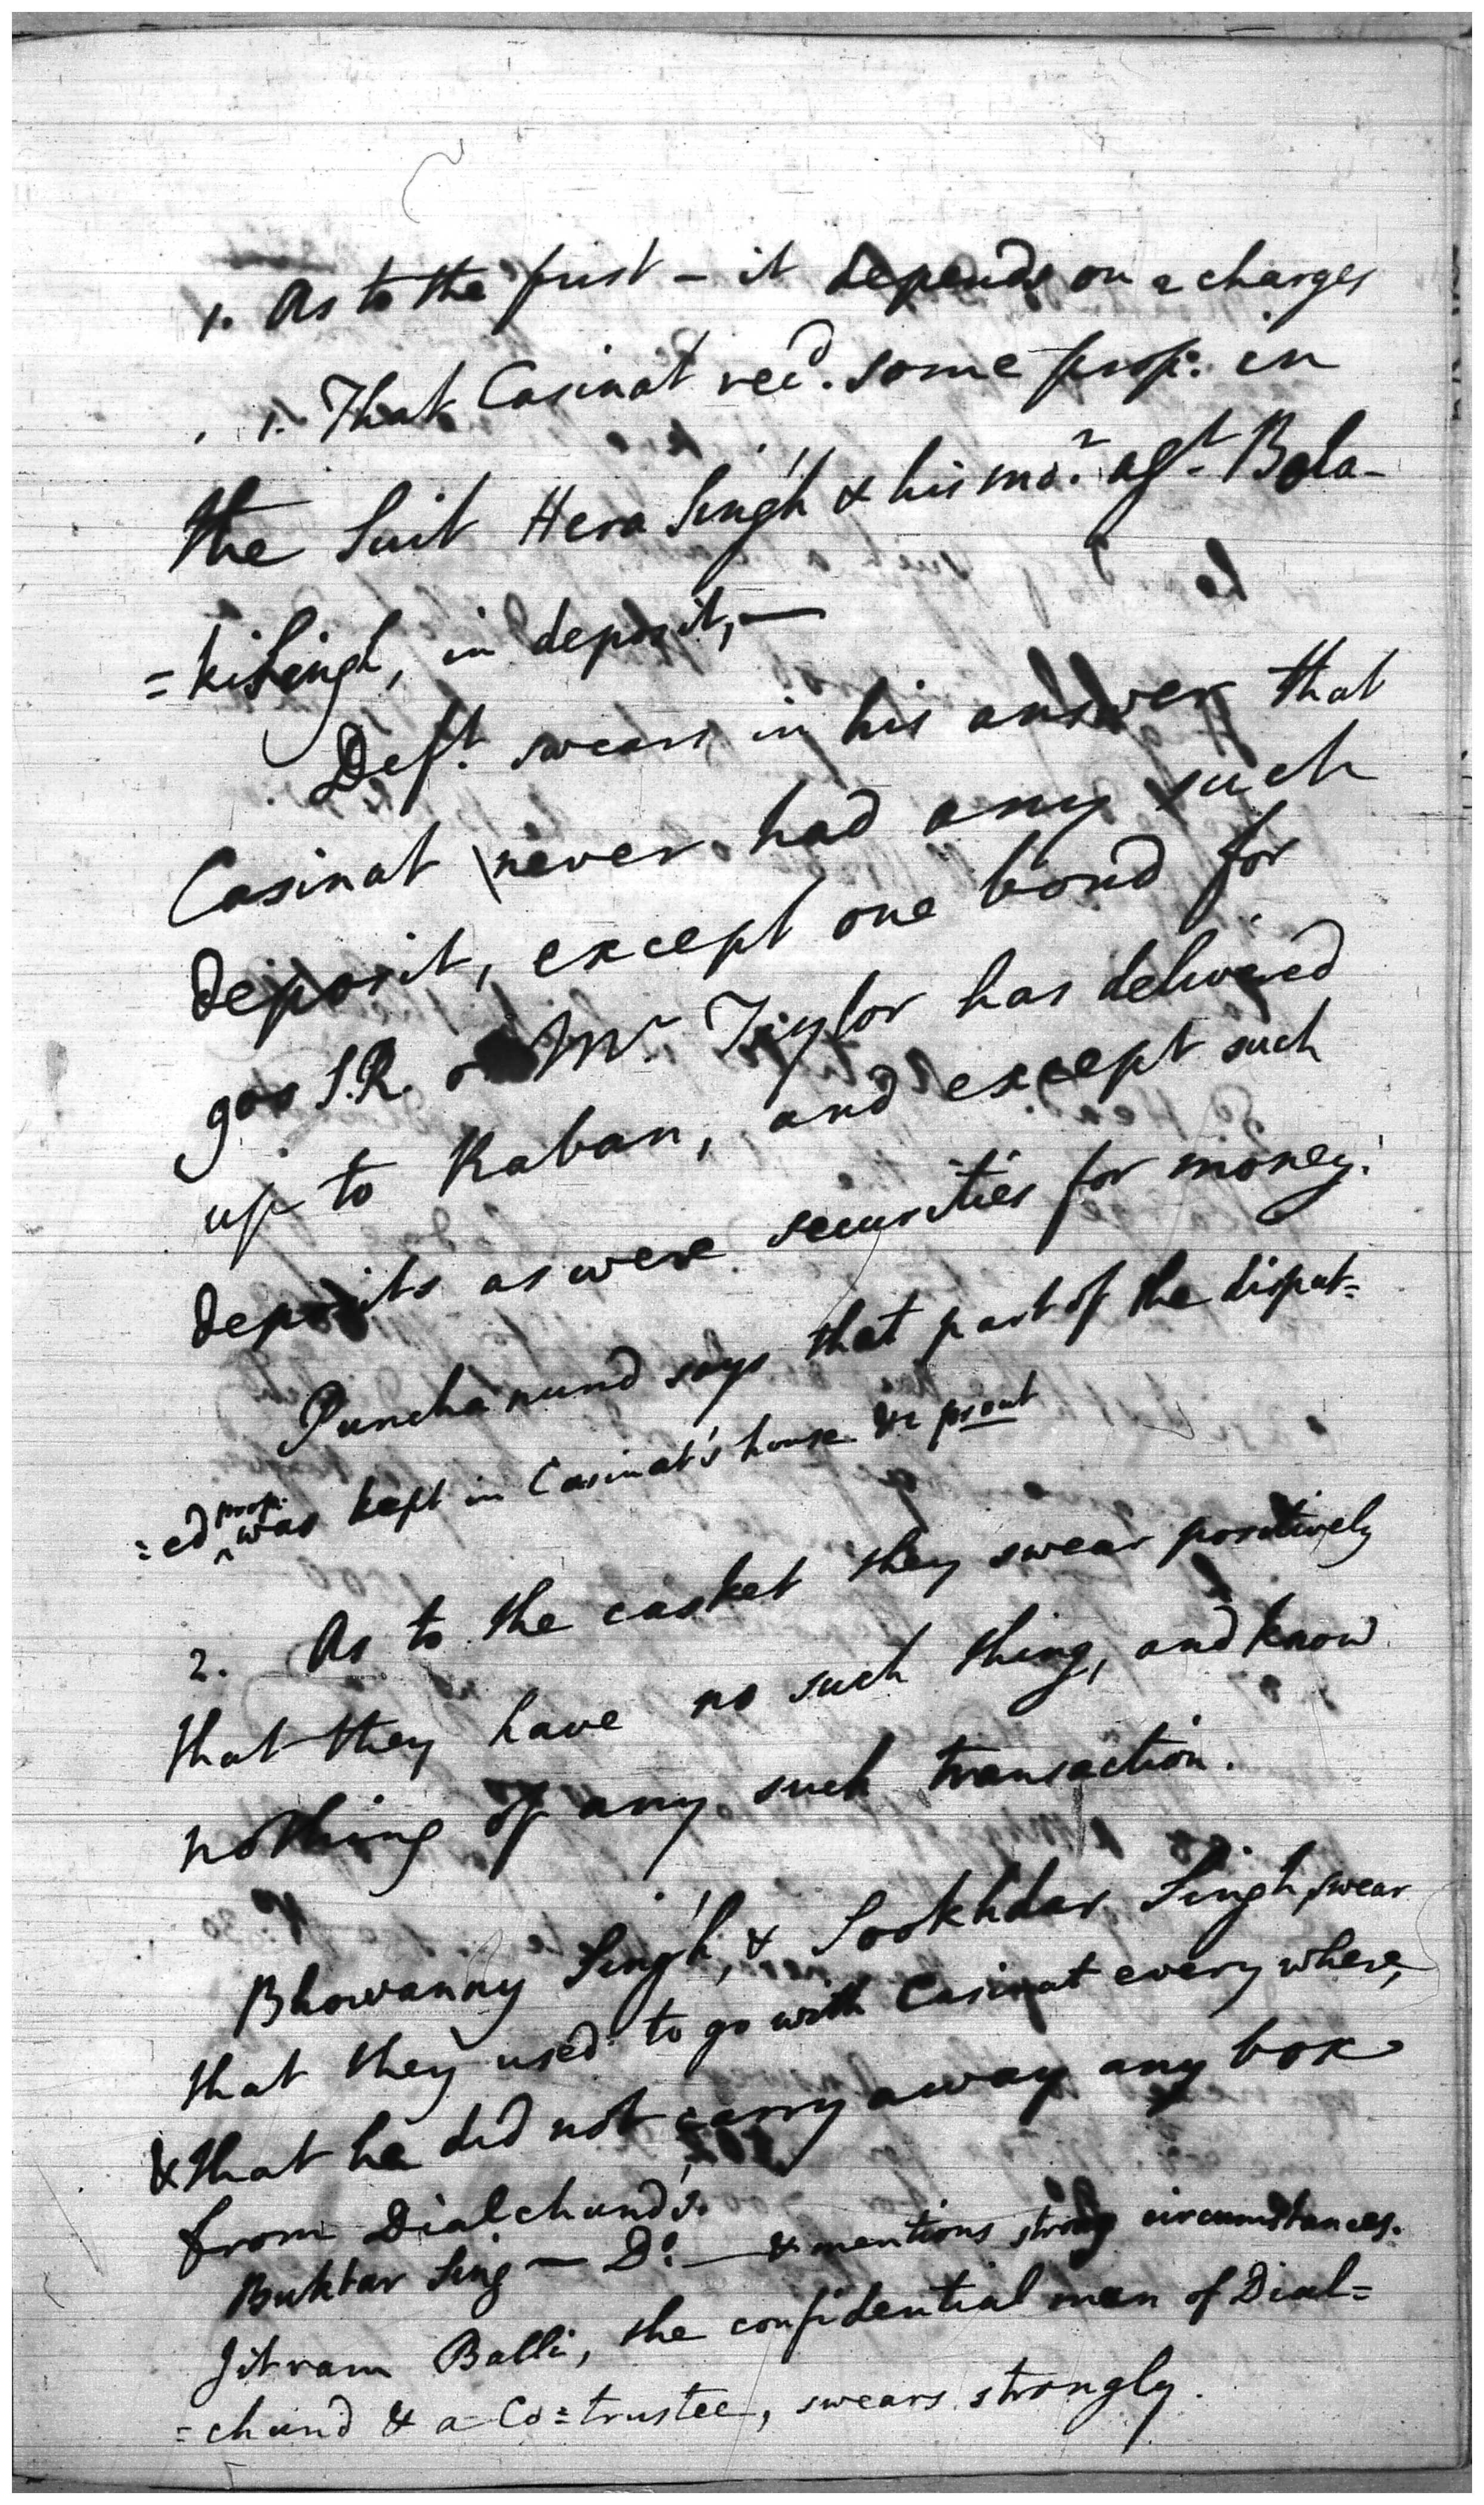 1. As to the first – it depends on 2 charges
1. That Casinat recd. some prop: in
the Suit Hera Singh & his mor. agt. Bola-
=kiSingh, in deposit, —
Deft. swears in his answer that
Casinat never had any such
deposit, except one bond for
900 S.R. Mr Taylor has delivered
up to Raban, and except such
deposits as were securities for money.
Punchanund says that part of the disput=
=ed prop: was kept in Casinat's house &c prout
2. As to the casket they swear positively
that they have no such thing, and know
nothing of any such transaction.
Bhowanny Singh, & Sookhdar Singh, swear
that they used to go with Casinat every where,
& that he did not carry away any box
from Dialchund's.
Buktar Sing — Do. — & mentions strong circumstances.
Jitram Balli, the confidential man of Dial=
=chund & a Co=trustee, swears strongly.